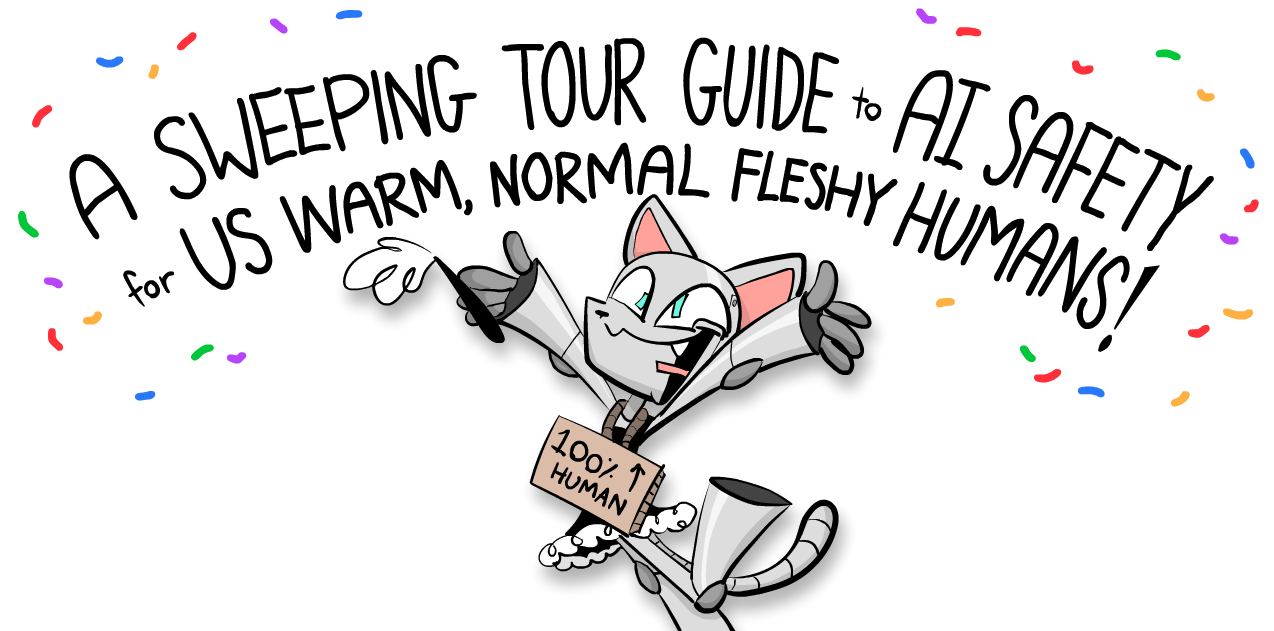 A SWEEPING TOUR GUIDE to AI SAFETY
for US WARM, NORMAL FLESHY HUMANS!
100% ↑
HUMAN